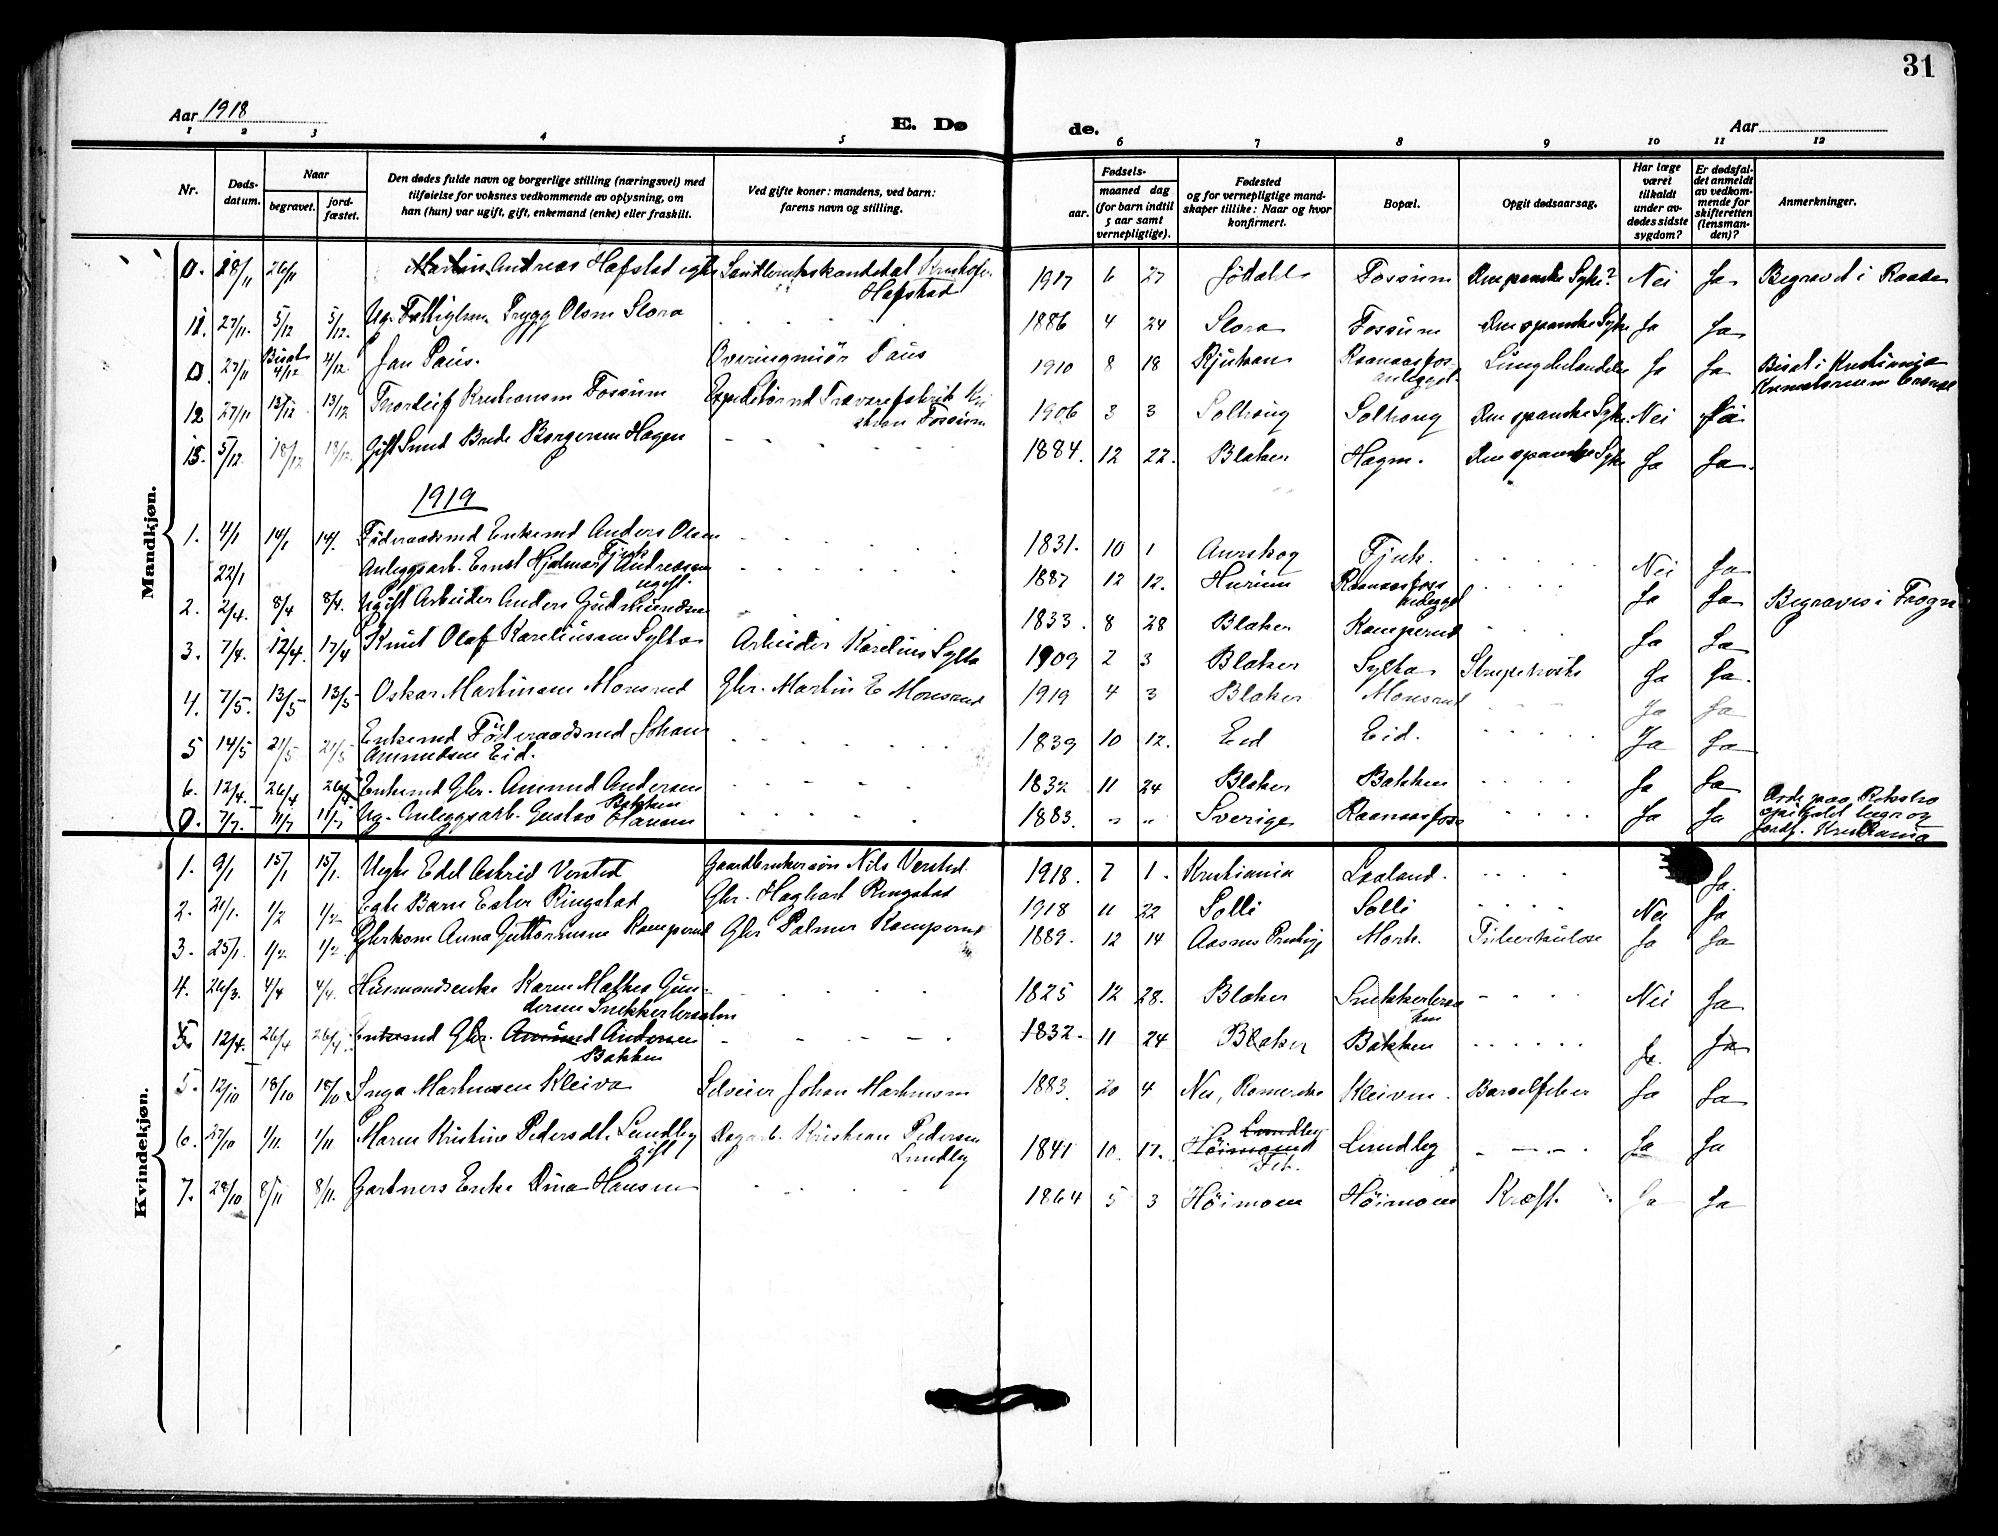 31
Aar 1918
E. Dø
de.
Aar
1 2 3 4 5 6 7 8 9 10 11 12
Nr.
Døds-
datum.
Naar
begravet.
jord-
fæstet.
Den dødes fulde navn og borgerlige stilling (næringsvei) med
tilføielse for voksnes vedkommende av oplysning, om
han (hun) var ugift, gift, enkemand (enke) eller fraskilt.
Ved gifte koner: mandens, ved barn:
farens navn og stilling.
Fødsels-
aar.
maaned dag
(for barn indtil
5 aar samt
vernepligtige).
Fødested
og for vernepligtige mand-
skaper tillike: Naar og hvor
konfirmert.
Bopæl.
Opgit dødsaarsag.
Har læge
været
tilkaldt
under av-
dødes sidste
sygdom?
Er dødsfal-
det anmeldt
av vedkom-
mende for
skifteretten
(lensman-
den)?
Anmerkninger.
Mandkjøn.
0. 18/11 26/11 Martin Andreas Hafstad 1917 6 27 Fossum Den spanske Syke? Nei Ja Begravet i Raade
Hafstad
11. 27/11. 5/12 5/12. Ug. Trygg Olsen Slora 1886 4 24 Slora Fossum Den spanske Syke Ja Ja
0. 27/11 Bisat 4/12 4/12. Jan Paus. Overingeniør Paus 1910 8 18 Rjukan Raanaasfos anlegget. Ja Ja Bisat i Kristiania
Krematorium
12 27/11 13/12 13/12 Thorleif Kristiansen Fossum 1906 3 3 Solhaug Solhaug Den spanske Syke Nei Ja
Fossum
15. 5/12. 18/12 18/12. Gift Bergersen Hagen 1884. 12 22. Blaker Hagen. Den spanske Syke Ja Ja.
1919
1. 4/1 14/1 14/1. Føderaadsmd Enkemd Anders Olsen
Fjuk 1831. 10 1 Aurskog Fjuk. Nei Ja
22/1 Anleggsarb. Ernst Hjalmar Andreasen
ugift. 1887 12 12. Hurum Raanaasfoss anlegget Ja Ja Begraves i Frogn
2. 2/4. 8/4 8/4. Ugift Arbeider Anders Gudmundsen 1833. 8 28 Blaker Kamperud Ja Ja
3. 7/4. 12/4. 12/4 Knut Olaf Kareliussen Sylta Arbeider Karelius Sylta 1909 2 3 Blaker Sylta Strupehoste Ja Ja.
4. 7/5. 13/5 13/5 Oskar Martinsen Monsrud Gbr. Martin E Monsrud 1919 4 3 Blaker Monsrud Ja Ja
5 14/5 21/5 21/5 Enkemd Føderaadsmd Johan
Amundsen Eid. 1839 10 12. Eid Eid. Ja Ja
6. 12/4. 26/4 26/4 Enkemd Gbr. Amund Andersen
Bakken 1832 11 24 Blaker Bakken Ja Ja
0. 7/7. 11/7 11/7 Ug. Anleggsarb. Gustav Hansen 1883. " " Sverige Raanaasfoss Ja Ja Døde paa Riksho
spitalet begr og
jordf. Kristiania
Kvindekjøn.
1. 9/1 15/1 15/1. Edel Astrid Versted Nils Versted. 1918. 7 1. Kristiania Laaland. Ja.
2. 21/1. 1/2 1/2 Egte Barn Ester Ringstad Gbr. Hagbart Ringstad 1918 11 22 Solli Solli Nei Ja
3. 25/1. 1/2. 1/2. Gbrkone Anna Guttormsen Kamperud Gbr Palmer Kamperud 1889. 12 14 Mork. Tuberkulose Ja Ja
4. 26/3. 4/4 4/4. Husmandsenke Karen Mathea Gun-
dersen 1825 12 28. Blaker Nei Ja
5. 12/4. 26/4 26/4. Enkemd Gbr. Amund Andersen
Bakken 1832. 11 24 Blaker Bakken Ja. Ja
5. 12/10 18/10 18/10 Inga Martinsen Kleiva Selveier Johan Martinsen 1883. 20 4 Nes, Romerike Kleiven. Barselfeber Ja Ja
6. 27/10 1/11. 1/11 Maren Kristine Pedersdt. Lundby
gift Dagarb. Kristian Pedersen
Lundby 1841 10. 17. Lundby
Høimoen
Fet. Lundby Ja Ja
7. 28/10 8/11 8/11. Gartners Enke Dina Hansen 1864 5 3 Høimoen Høimoen Kræft. Ja Ja